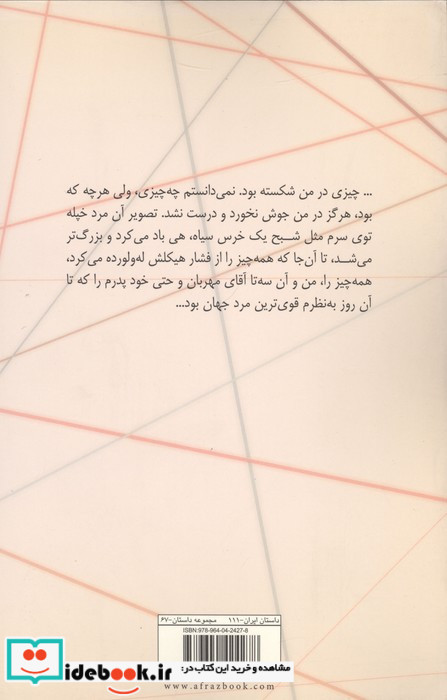 ... چیزی در من شکسته بود. نمی‌دانستم چه‌چیزی، ولی هرچه که
بود، هرگز در من جوش نخورد و درست نشد. تصویر آن مرد خپله
توی سرم مثل شبح یک خرس سیاه، هی باد می‌کرد و بزرگ‌تر
می‌شد، تا آن‌جا که همه‌چیز را از فشار هیکلش له‌ولورده می‌کرد،
همه‌چیز را، من و آن سه‌تا آقای مهربان و حتی خود پدرم را که تا
آن روز به‌نظرم قوی‌ترین مرد جهان بود...
داستان ایران-۱۱۱ مجموعه داستان-۶۷
ISBN:978-964-04-2427-8
idebook.ir
مشاهده و خرید این کتاب در:
www.afrazbook.com